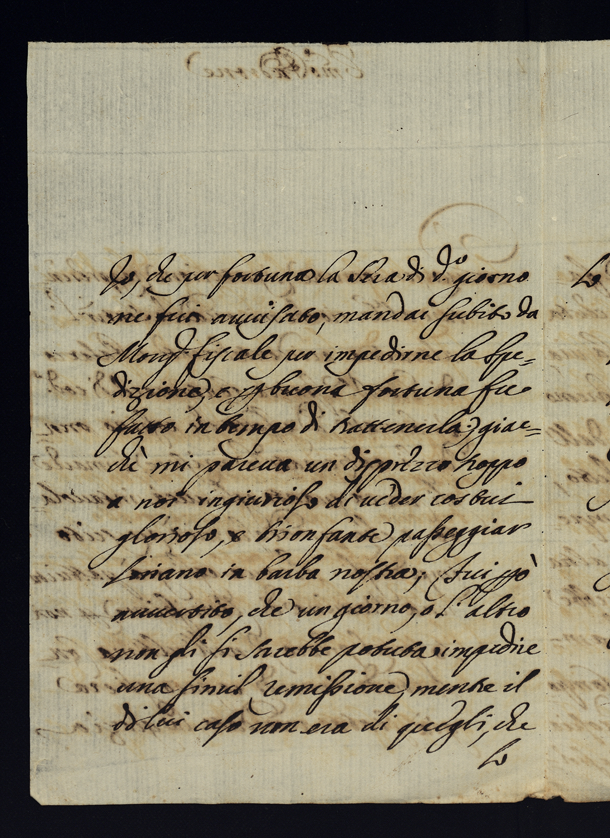 Io, che per fortuna la sera di d.º giorno
ne fui auuisato, mandai subito da
Mong.r Fiscale per impedirne la spe=
dizione, e p buona fortuna fu
fatto in tempo di trattenerla, giac=
chè mi pareua un disprezzo troppo
a noi ingiurioso di ueder costui
glorioso, e trionfante passeggiar
Soriano in barba nostra; fui pò
auuertito, che un giorno, o l'altro
non gli si sarebbe potuta impedire
una simil remissione, mentre il
di lui caso non era di quegli, che
lo
Lo